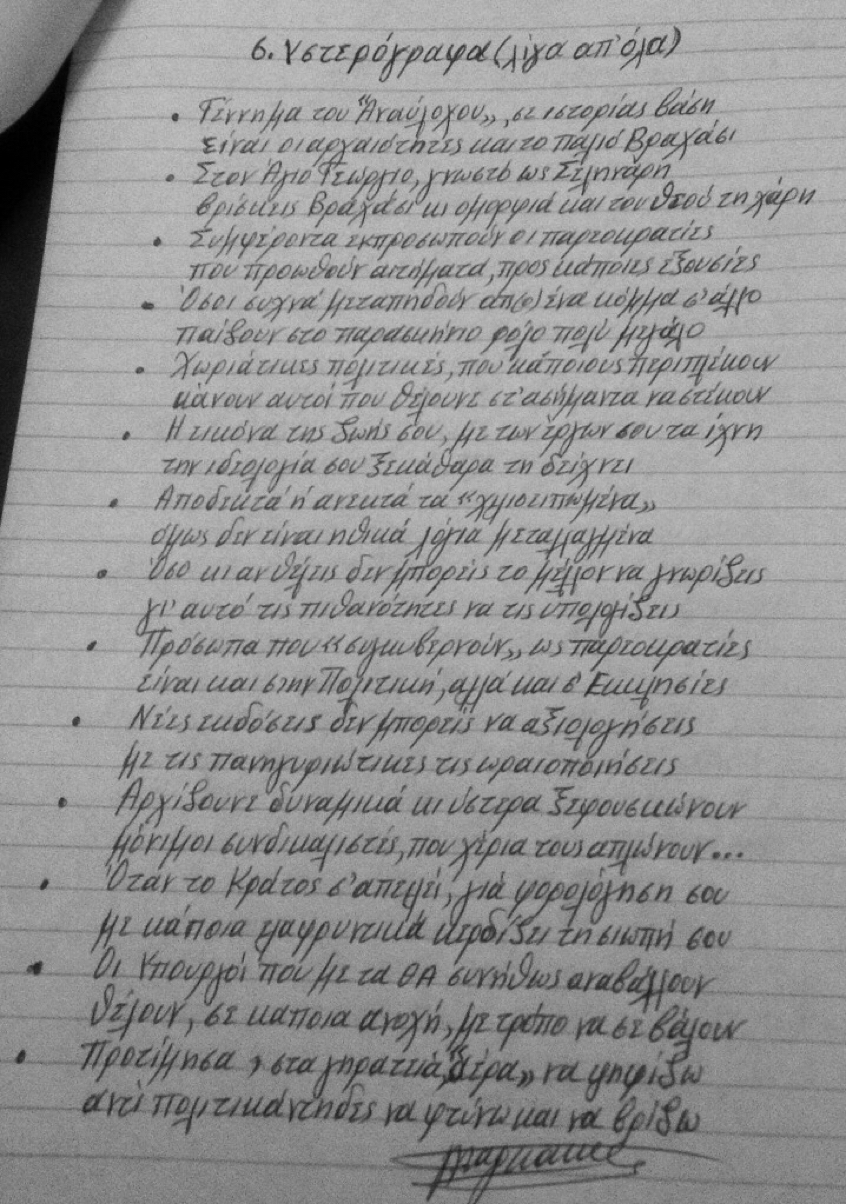 6. Υστερόγραφα (λίγα απ' όλα)
• Γέννημα του "Αναύλοχου», σε ιστορίας βάση
είναι οι αρχαιότητες και το παλιό Βραχάσι
• Στον Άγιο Γεώργιο, γνωστό ως Σεληνάρη
βρίσκεις Βραχάσι κι ομορφιά και του Θεού τη χάρη
• Συμφέροντα εκπροσωπούν οι παρεοκρατίες
που προωθούν αιτήματα, προς κάποιες εξουσίες
• Όσοι συχνά μεταπηδούν απ(ο) ένα κόμμα σ' άλλο
παίζουν στο παρασκήνιο ρόλο πολύ μεγάλο
• Χωριάτικες πολιτικές, που κάποιους περιπλέκουν
κάνουν αυτοί που θέλουνε στ' ασήμαντα να στέκουν
• Η εικόνα της ζωής σου, με των έργων σου τα ίχνη
την ιδεολογία σου ξεκάθαρα τη δείχνει
• Αποδεκτά ή ανεκτά τα «χιλιοειπωμένα»
όμως δεν είναι ηθικά λόγια μεταλλαγμένα
• Όσο κι αν θέλεις δεν μπορείς το μέλλον να γνωρίζεις
γι' αυτό τις πιθανότητες να τις υπολογίζεις
• Πρόσωπα που «συγκυβερνούν», ως παρεοκρατίες
είναι και στην Πολιτική, αλλά και σ' Εκκλησίες
• Νέες εκδόσεις δεν μπορείς να αξιολογήσεις
με τις πανηγυριώτικες τις ωραιοποιήσεις
• Αρχίζουνε δυναμικά κι ύστερα ξεφουσκώνουν
μόνιμοι συνδικαλιστές, που χέρια τους απλώνουν...
• Όταν το Κράτος σ' απειλεί, γιά φορολόγηση σου
με κάποια ελαφρυντικά κερδίζει τη σιωπή σου
• Οι Υπουργοί που με τα ΘΑ συνήθως αναβάλλουν
θέλουν, σε κάποια ανοχή, με τρόπο να σε βάλουν
• Προτίμησα, στα γηρατειά, "αέρα» να ψηφίζω
αντί πολιτικάντηδες να φτύνω και να βρίζω